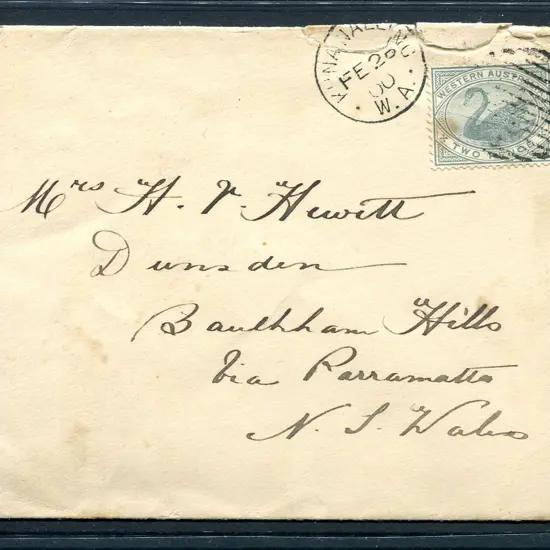 KUNANALLING
FE 26
00
W.A.
WESTERN AUSTRA
TWO
Mrs H. V. Hewitt
Dunsden
Baulkham Hills
Via Parramatta
N. S. Wales